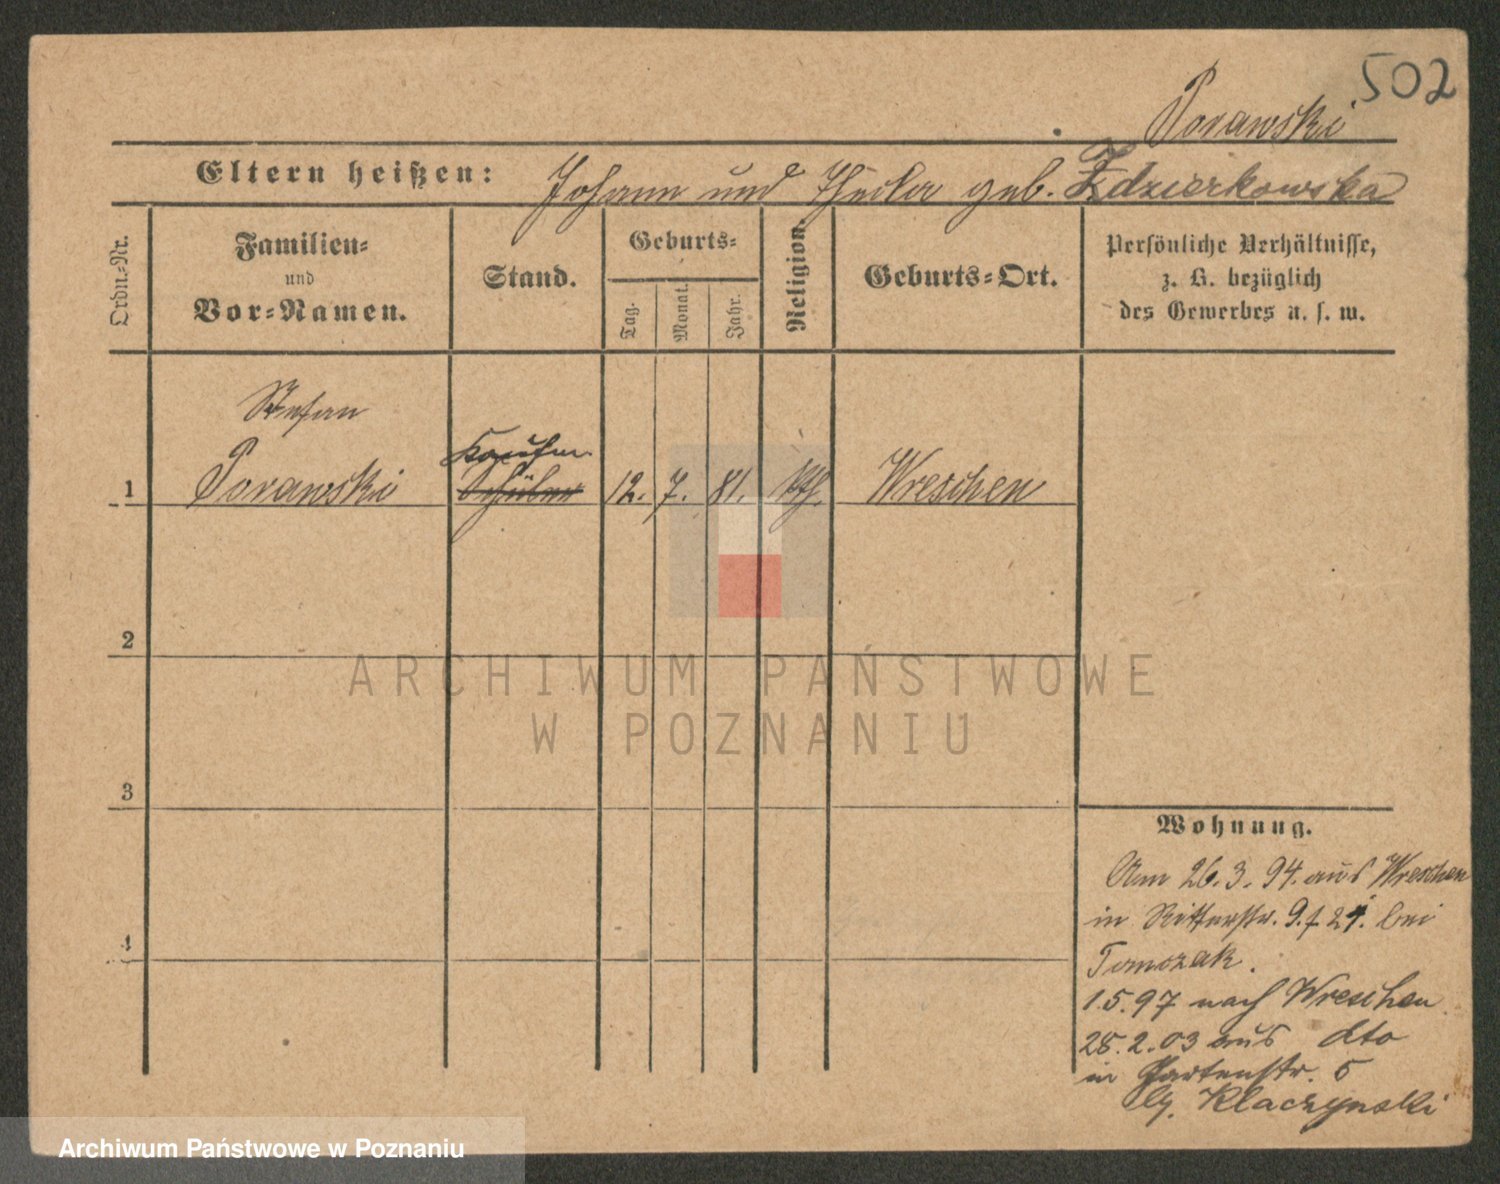 502
Porawski
Eltern heißen: Johann und Thecla geb. Zdzierkowska
Ordn.-Nr.
Familien-
und
Vor-Namen.
Stand.
Geburts-
Tag.
Monat.
Jahr.
Religion.
Geburts-Ort.
Persönliche Verhältnisse,
z. B. bezüglich
des Gewerbes u. s. w.
Stefan
Kaufm.
1 Porawski Schüler 12. 7. 81. kth. Wreschen
2
3
4
Wohnung.
Am 26.3.94. aus Wreschen
in Ritterstr. 9. bei
Tomczak.
1.5.97 nach Wreschen
28.2.03 aus dto
in Gartenstr. 5
Klaczynski
ARCHIWUM PAŃSTWOWE
W POZNANIU
Archiwum Państwowe w Poznaniu